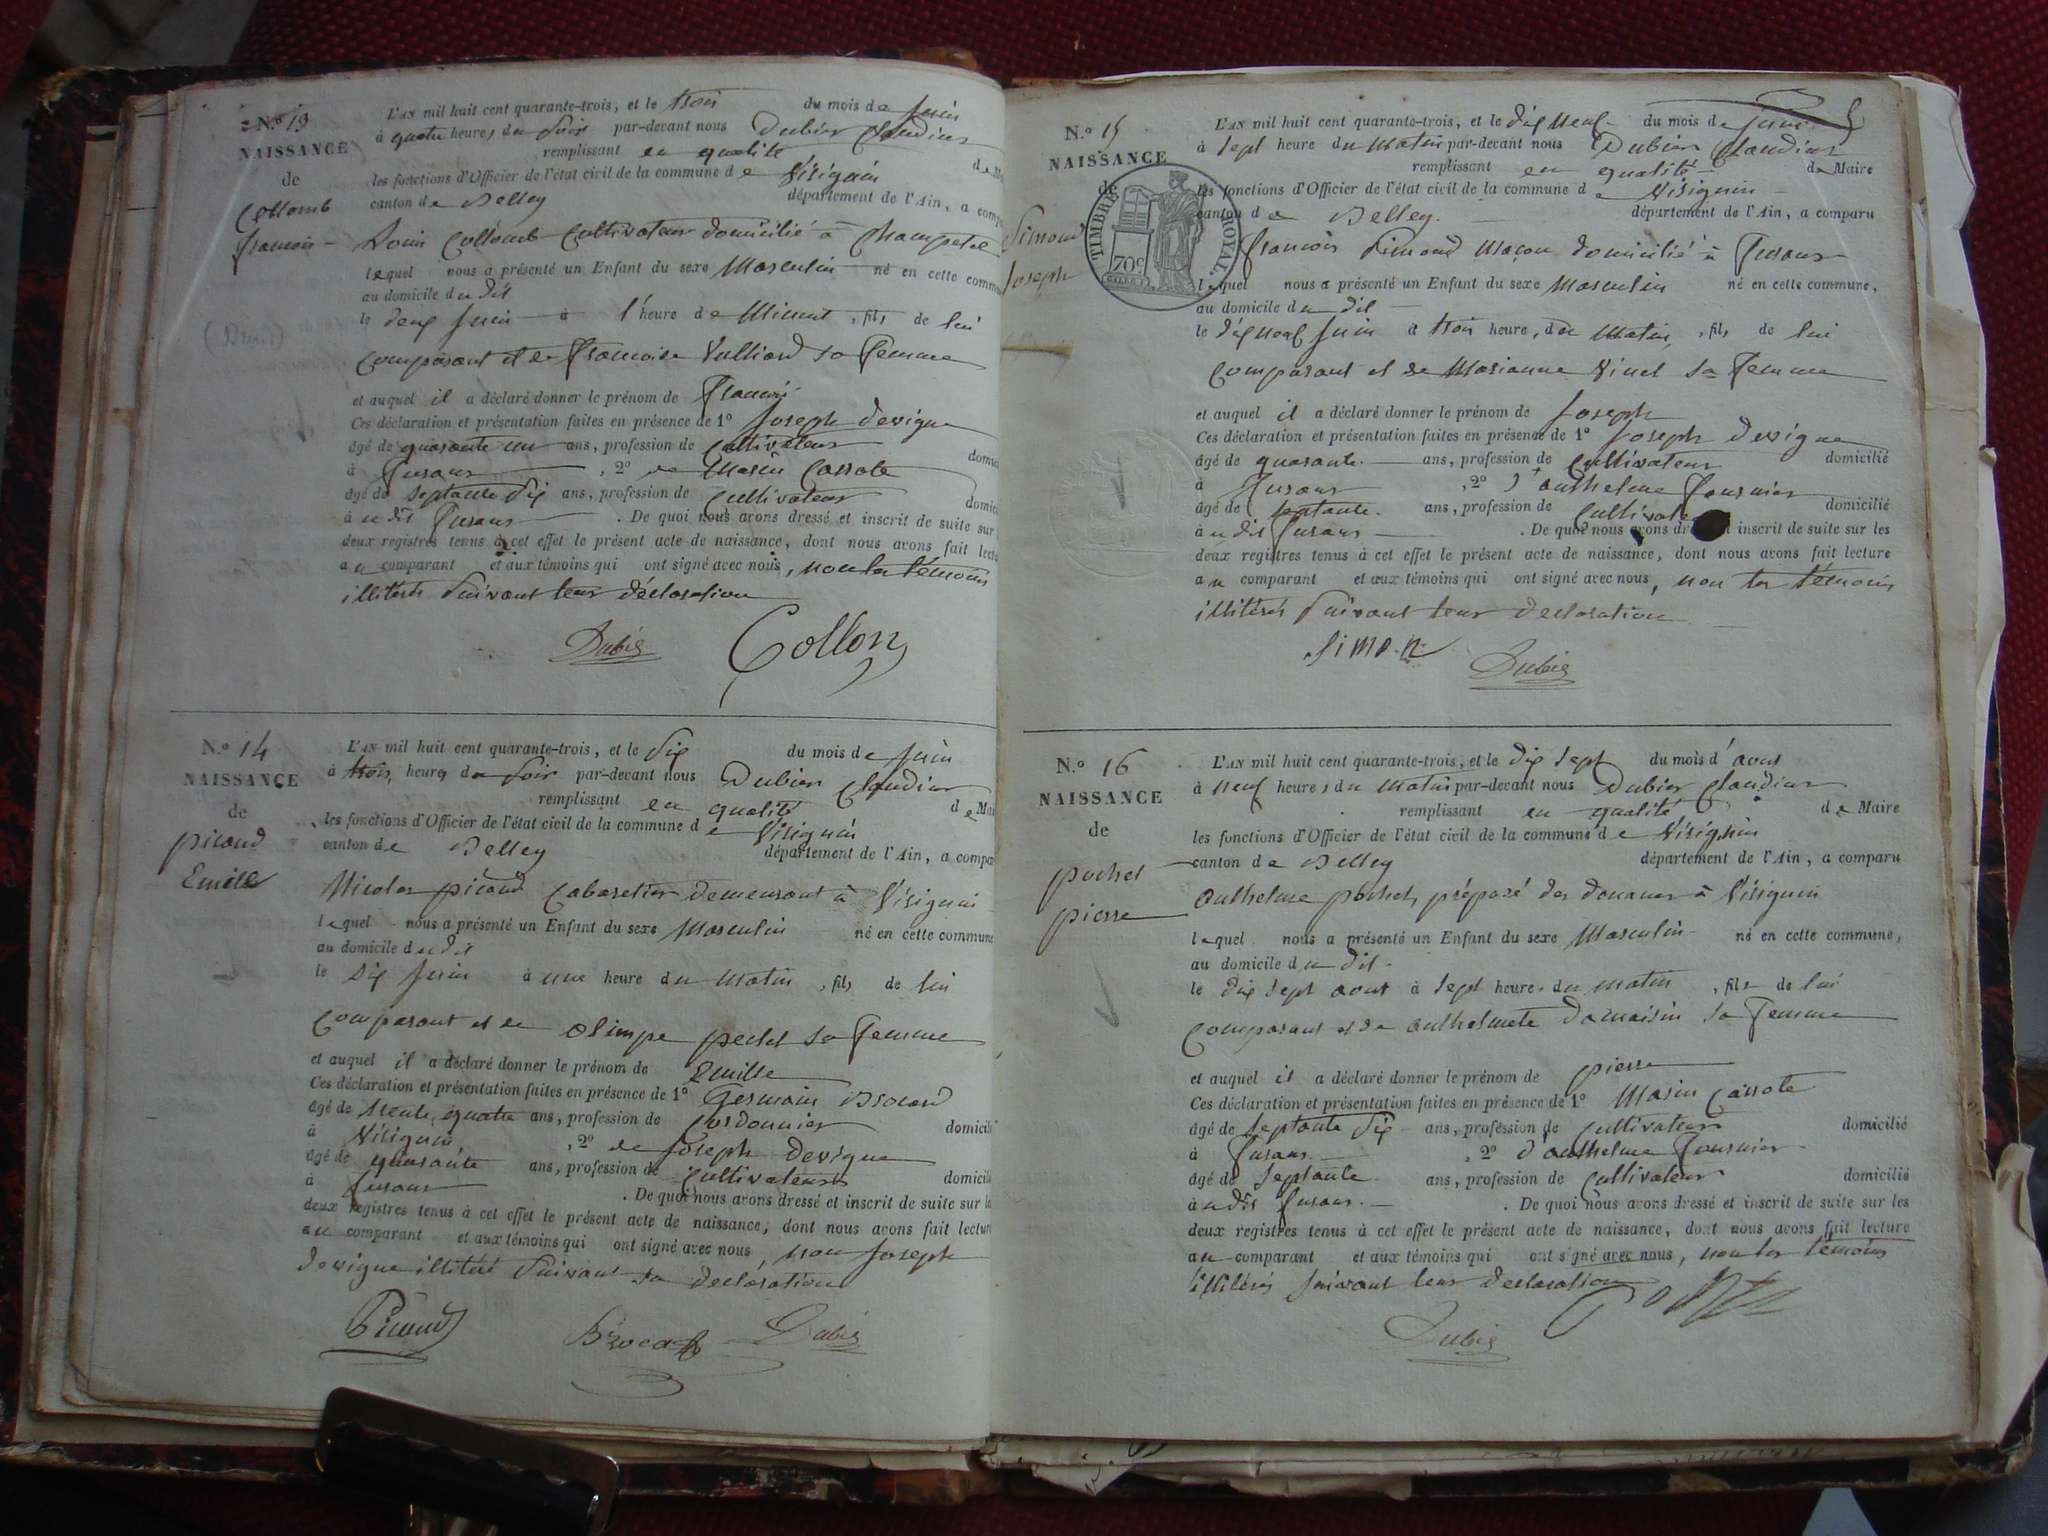 N.º 13
NAISSANCE
de
Collomb
françois
L'AN mil huit cent quarante-trois, et le trois du mois de juin
à quatre heures du soir par-devant nous Dubier Claudius
remplissant en qualité de
les fonctions d'Officier de l'état civil de la commune de Virignin
canton de Belley département de l'Ain, a
Louis Collomb Cultivateur domicilié à
lequel nous a présenté un Enfant du sexe Masculin né en cette
au domicile du dit
le deux juin à l'heure de Minuit, fils de lui
comparant et de françoise Vulliard sa femme
et auquel il a déclaré donner le prénom de françois
Ces déclaration et présentation faites en présence de 1º Joseph devigne
âgé de quarante un ans, profession de Cultivateur
à fusans, 2º de Marin Carrote
âgé de septante dix ans, profession de Cultivateur
à u dit fusans. De quoi nous avons dressé et inscrit de suite sur
deux registres tenus à cet effet le présent acte de naissance, dont nous avons fait
au comparant et aux témoins qui ont signé avec nous, non les témoins
illitérés suivant leur déclaration
Dubier Collon
N.º 14
NAISSANCE
de
picaud
Emille
L'AN mil huit cent quarante-trois, et le dix du mois de juin
à trois heures du soir par-devant nous Dubier Claudius
remplissant en qualité de Mai
les fonctions d'Officier de l'état civil de la commune de Virignin
canton de Belley département de l'Ain, a
Nicolas picaud Cabaretier demeurant à Virignin
lequel nous a présenté un Enfant du sexe Masculin né en cette commune
au domicile du dit
le dix juin à une heure du matin, fils de lui
comparant et de olimpe sa femme
et auquel il a déclaré donner le prénom de Emille
Ces déclaration et présentation faites en présence de 1º Germain Brocard
âgé de trente quatre ans, profession de Cordonnier
à Virignin, 2º de Joseph devigne
âgé de quarante ans, profession de Cultivateur
à fusans. De quoi nous avons dressé et inscrit de suite sur
deux registres tenus à cet effet le présent acte de naissance, dont nous avons fait lecture
au comparant et aux témoins qui ont signé avec nous non Joseph
devigne illitéré suivant sa declaration
Picaud Brocard Dubier
N.º 15
NAISSANCE
de
Simond
Joseph
TIMBRE ROYAL.
70c
L'AN mil huit cent quarante-trois, et le dix neuf du mois de juin
à sept heure du matin par-devant nous Dubier Claudius
remplissant en qualité de Maire
les fonctions d'Officier de l'état civil de la commune de Virignin
canton de Belley. département de l'Ain, a comparu
françois Simond Maçon domicilié à fusans
lequel nous a présenté un Enfant du sexe Masculin né en cette commune,
au domicile du dit
le dix neuf juin à trois heure, du matin, fils de lui
comparant et de Marianne sa femme
et auquel il a déclaré donner le prénom de Joseph
Ces déclaration et présentation faites en présence de 1º Joseph devigne
âgé de quarante ans, profession de Cultivateur domicilié
à fusans, 2º d'anthelme fournier
âgé de septante ans, profession de domicilié
à u dit fusans. De quoi nous avons inscrit de suite sur les
deux registres tenus à cet effet le présent acte de naissance, dont nous avons fait lecture
au comparant et aux témoins qui ont signé avec nous, non les témoins
illitérés suivant leur declaration
Simon Dubier
N.º 16
NAISSANCE
de
pochet
pierre
L'AN mil huit cent quarante-trois, et le dix sept du mois d'aout
à neuf heures du matin par-devant nous Dubier Claudius
remplissant en qualité de Maire
les fonctions d'Officier de l'état civil de la commune de Virignin
canton de Belley département de l'Ain, a comparu
anthelme pochet, préposé des douanes à Virignin
lequel nous a présenté un Enfant du sexe Masculin né en cette commune,
au domicile du dit
le dix sept aout à sept heures du matin, fils de lui
comparant et de anthelmete sa femme
et auquel il a déclaré donner le prénom de pierre
Ces déclaration et présentation faites en présence de 1º Marin Carrote
âgé de septante dix ans, profession de Cultivateur domicilié
à fusans, 2º d'anthelme fournier
âgé de septante ans, profession de Cultivateur domicilié
à u dit fusans. De quoi nous avons dressé et inscrit de suite sur les
deux registres tenus à cet effet le présent acte de naissance, dont nous avons fait lecture
au comparant et aux témoins qui ont signé avec nous, non les témoins
illitérés suivant leur declaration
Dubier